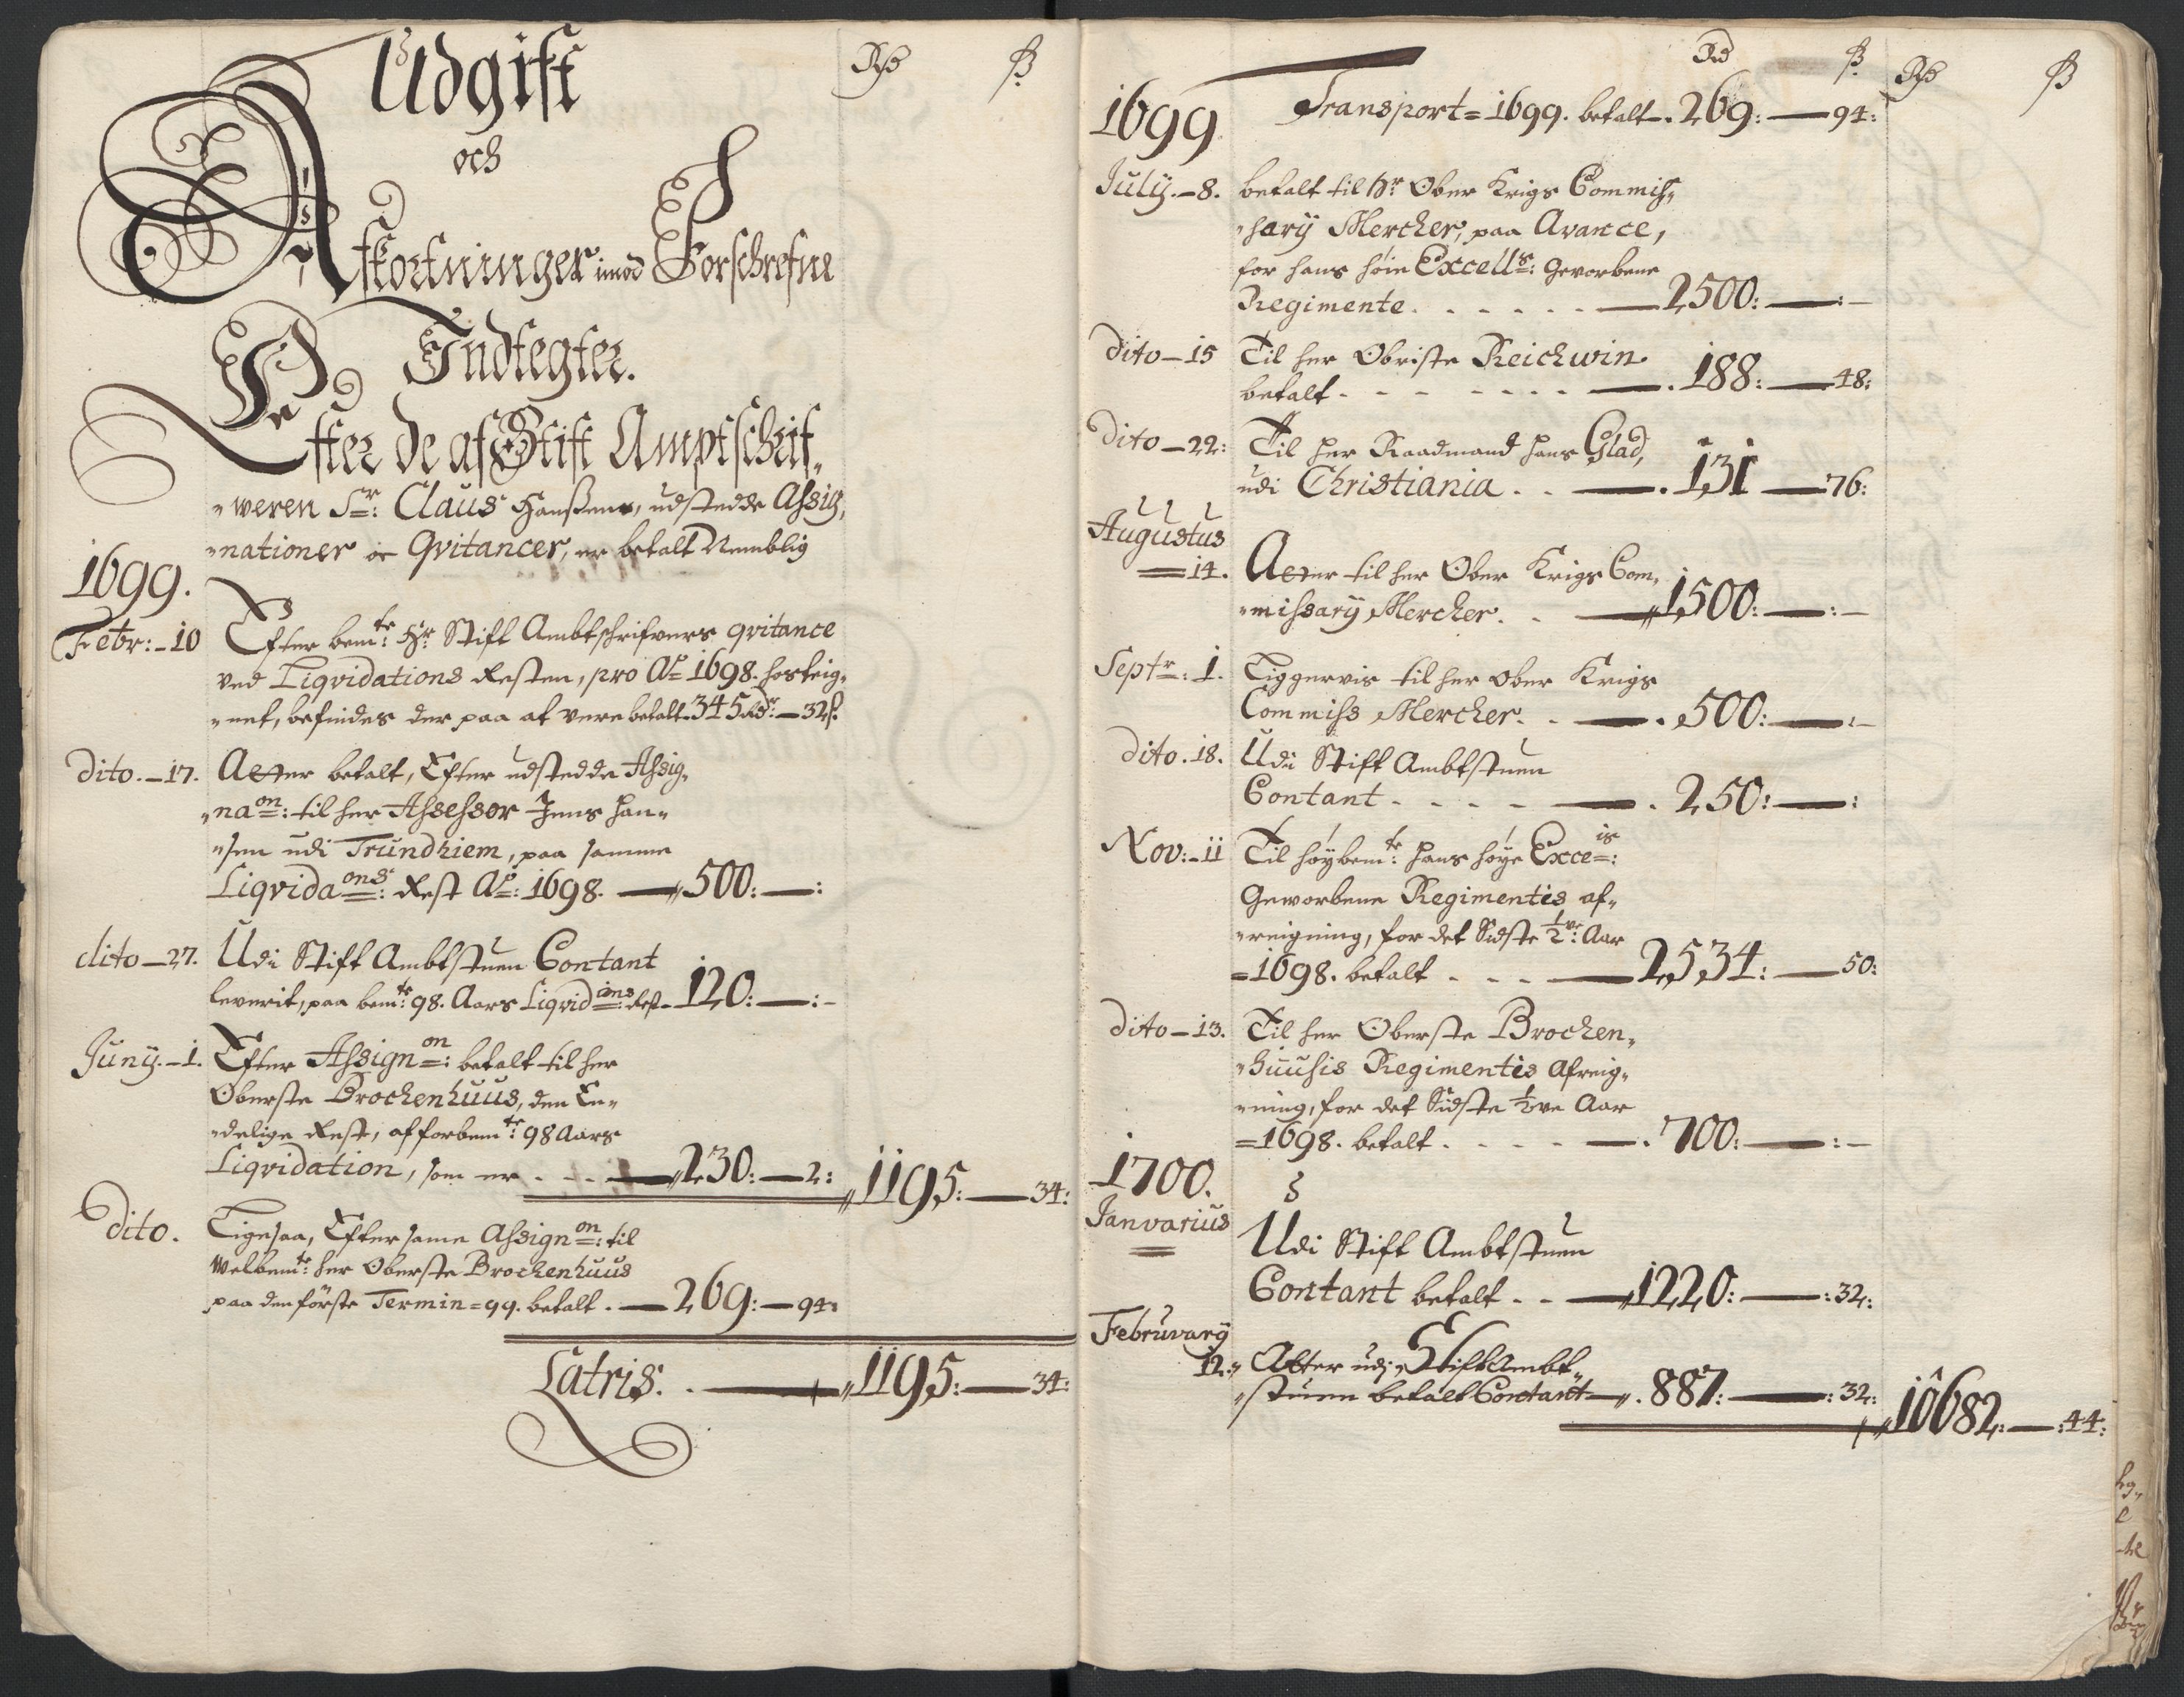 Rdr ß
Udgift
och
Afkortninger imod Forschrefne
Indtegter.
Effter de af Stift Amptschrif„
„weren Sr: Claus Hanßens, udstedde Assig„
„nationer oc Qvitancer, er betalt Nemblig
1699.
Febr:–10 Efter bemte: Hr Stift Ambtschrifvers qvitance
ved Liqvidations Resten, pro Ao 1698. hosteig„
„net, befindes der paa at vere betalt 345 Rdr:–32ß.
dito.–17. Atter betalt, Efter udstedde Assig„
„naon: til her Assessor Jens Han„
„sen udi Trundhiem, paa samme
Liqvidaons: Rest Ao: 1698. — 500:—:
dito–27. Udi Stift Ambtstuen Contant
leverit, paa bemte: 98. Aars Liqvidions: Rest– 120:—:–
Juny.–1. Efter Assignon: betalt til her
Oberste Brochenhuus, den En„
„delige Rest, af forbemte: 98 Aars
Liqvidation, som er . - - — 230:—2: 1195:—34:
dito. Ligesaa, Efter same Assignon: til
Welbemte: her Oberste Brochenhuus
paa den förste Termin=99. betalt . — 269:—94:
Latris. . — 1195:—34:
Rd ß Rdr ß
1699 Transport=1699. betalt. 269:—94:
July.–8. betalt til Hr Ober Krigs Commis„
„sary Mercher, paa Avance,
for hans höie Excells: Gevorbene
Regimente . . . . . . — 2500:—:–
dito–15 Til her Obriste Reichwin
betalt - - - - - - — . 188:—48:
dito–22: Til her Raadmand Hans Glad,
udi Christiania . . — . 131—76:
Augustus
=14. Atter til her Ober Krigs Com„
„missary Mercher . . — 1500:—:–
Septr: 1. Liggervis til her Ober Krigs
Commiss Mercher . . — . 500:—:–
dito. 18. Udi Stift Ambtstuen
Contant - - - - — . 250:—:
Nov:–11 Til höybemte: hans höye Exceis:
Geworbene Regimentes af„
„reigning, for det Sidste ½ve: Aar
=1698. betalt . - - — 2534:—50:
dito–13. Til her Oberste Brochen„
„huusis Regimentes Afreig„
„ning, for det Sidste ½ve Aar
=1698. betalt . . - - — . 700:—:–
1700.
Janvarius
Udi Stift Ambtstuen
Contant betalt - - — 1220:—:32:
Februvary
12:„ Atter udj Stift Ambt„
„stuen betalt Contant—„. 887:—:32: 10682:—:44: